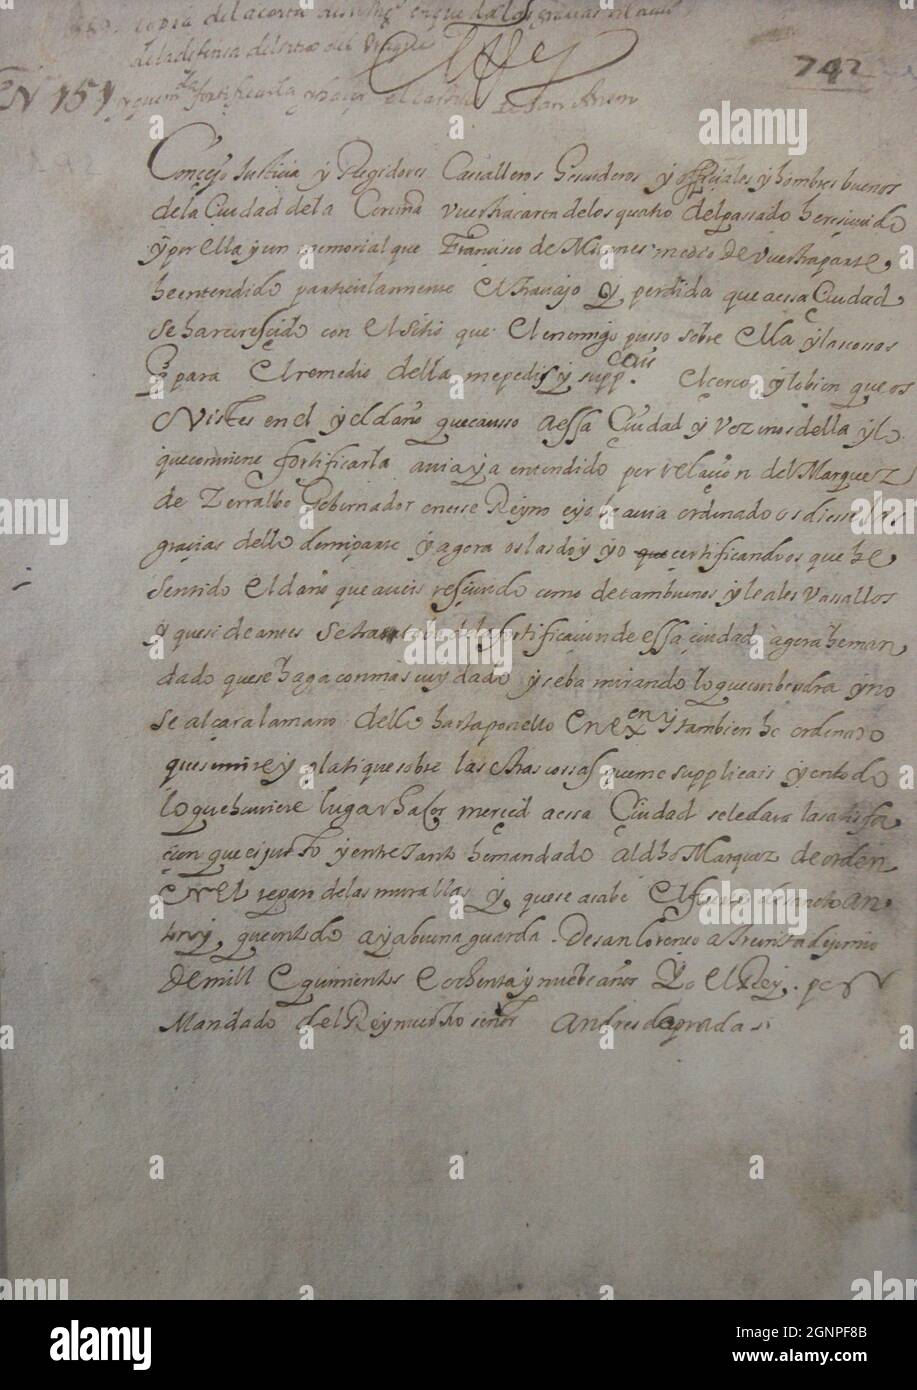 copia de la carta de su mag.d en que da las gracias
de la defensa del sitio del Draque
El Rey
742
N 151
fortificarla de San Anton
Concejo Justicia y Regidores Caualleros Escuderos y offiçiales y hombres buenos
de la Ciudad de la Coruña vuestra carta de los quatro del passado he resciuido
y por ella y un memorial que Francisco de Mirones me dio de vuestra parte,
he entendido particularmente el trauajo y perdida que a essa Çiudad
se ha recrescido con el sitio que el enemigo puso sobre ella y las cosas
q para el remedio della me pedis y supp.cais el cerco, y lo bien que os
vistes en el y el daño que causso a essa Çiudad y vezinos della y lo
que conviene fortificarla auia ya entendido por relaçion del Marquez
de Zerralbo Gobernador en esse Reyno e yo le auia ordenado os diesse las
gracias dello de mi parte y agora os las doy yo que certificandoos que he
sentido el daño que aueis resciuido como de tan buenos y leales vassallos
y que si de antes se trataba de la fortificacion de essa ciudad agora he man
dado que se haga con mas cuydado y se ba mirando lo que conbendra y no
se alçara la mano dello hasta ponello en ex.on y tambien he ordenado
que se mire y platique sobre las otras cossas que me supplicais y en todo
lo que huuiere lugar haçer merced a essa Çiudad se le dara la satisfa
çion que es justo y entre tanto he mandado al dho Marquez de orden
en el reparo de las murallas y que se acabe el fuerte de sancto an
ton y que en todo aya buena guarda. De san Lorenço a treinta de junio
de mill e quinientos e ochenta y nuebe años Yo el Rey. por
Mandado del Rey nuestro señor Andres de prada
alamy
Image ID: 2GNPF8B
www.alamy.com